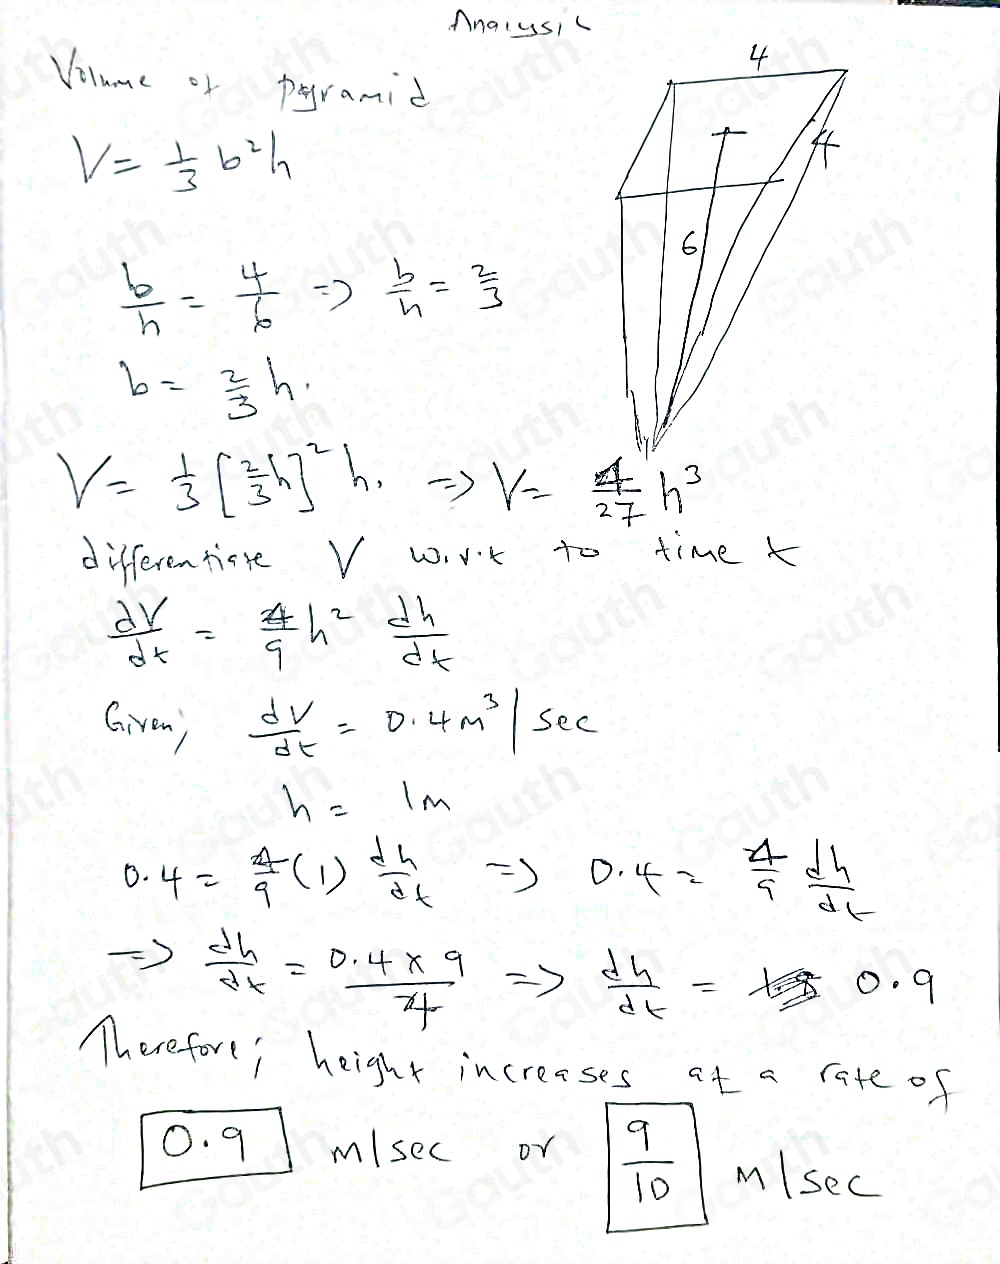 Analysis
Volume of pyramid
4
V = 1/3 b²h
4
6
b/h = 4/6 => b/h = 2/3
b = 2/3 h.
V = 1/3 [2/3 h]² h. => V = 4/27 h³
differentiate V w.r.t to time t
dV/dt = 4/9 h² dh/dt
Given; dV/dt = 0.4m³/sec
h = 1m
0.4 = 4/9 (1) dh/dt => 0.4 = 4/9 dh/dt
=> dh/dt = 0.4 x 9/4 => dh/dt = 0.9
Therefore; height increases at a rate of
0.9 m/sec or 9/10 m/sec
Gauth